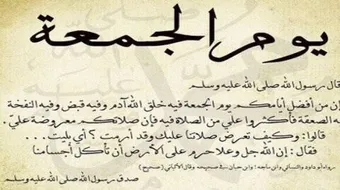 يوم الجمعة
قال رسول الله صلى الله عليه وسلم
إن من أفضل أيامكم يوم الجمعة فيه خلق الله آدم وفيه قبض وفيه النفخة
وفيه الصعقة فأكثروا علي من الصلاة فيه فإن صلاتكم معروضة علي .
قالوا : وكيف تعرض صلاتنا عليك وقد أرمت ؟ أي بليت ...
فقال : إن الله جل وعلا حرم على الأرض أن تأكل أجسامنا
رواه أبو داود والنسائي وابن ماجه : وابن حبان في صحيحه وقال الألباني ( صحيح )
صدق رسول الله صلى الله عليه وسلم